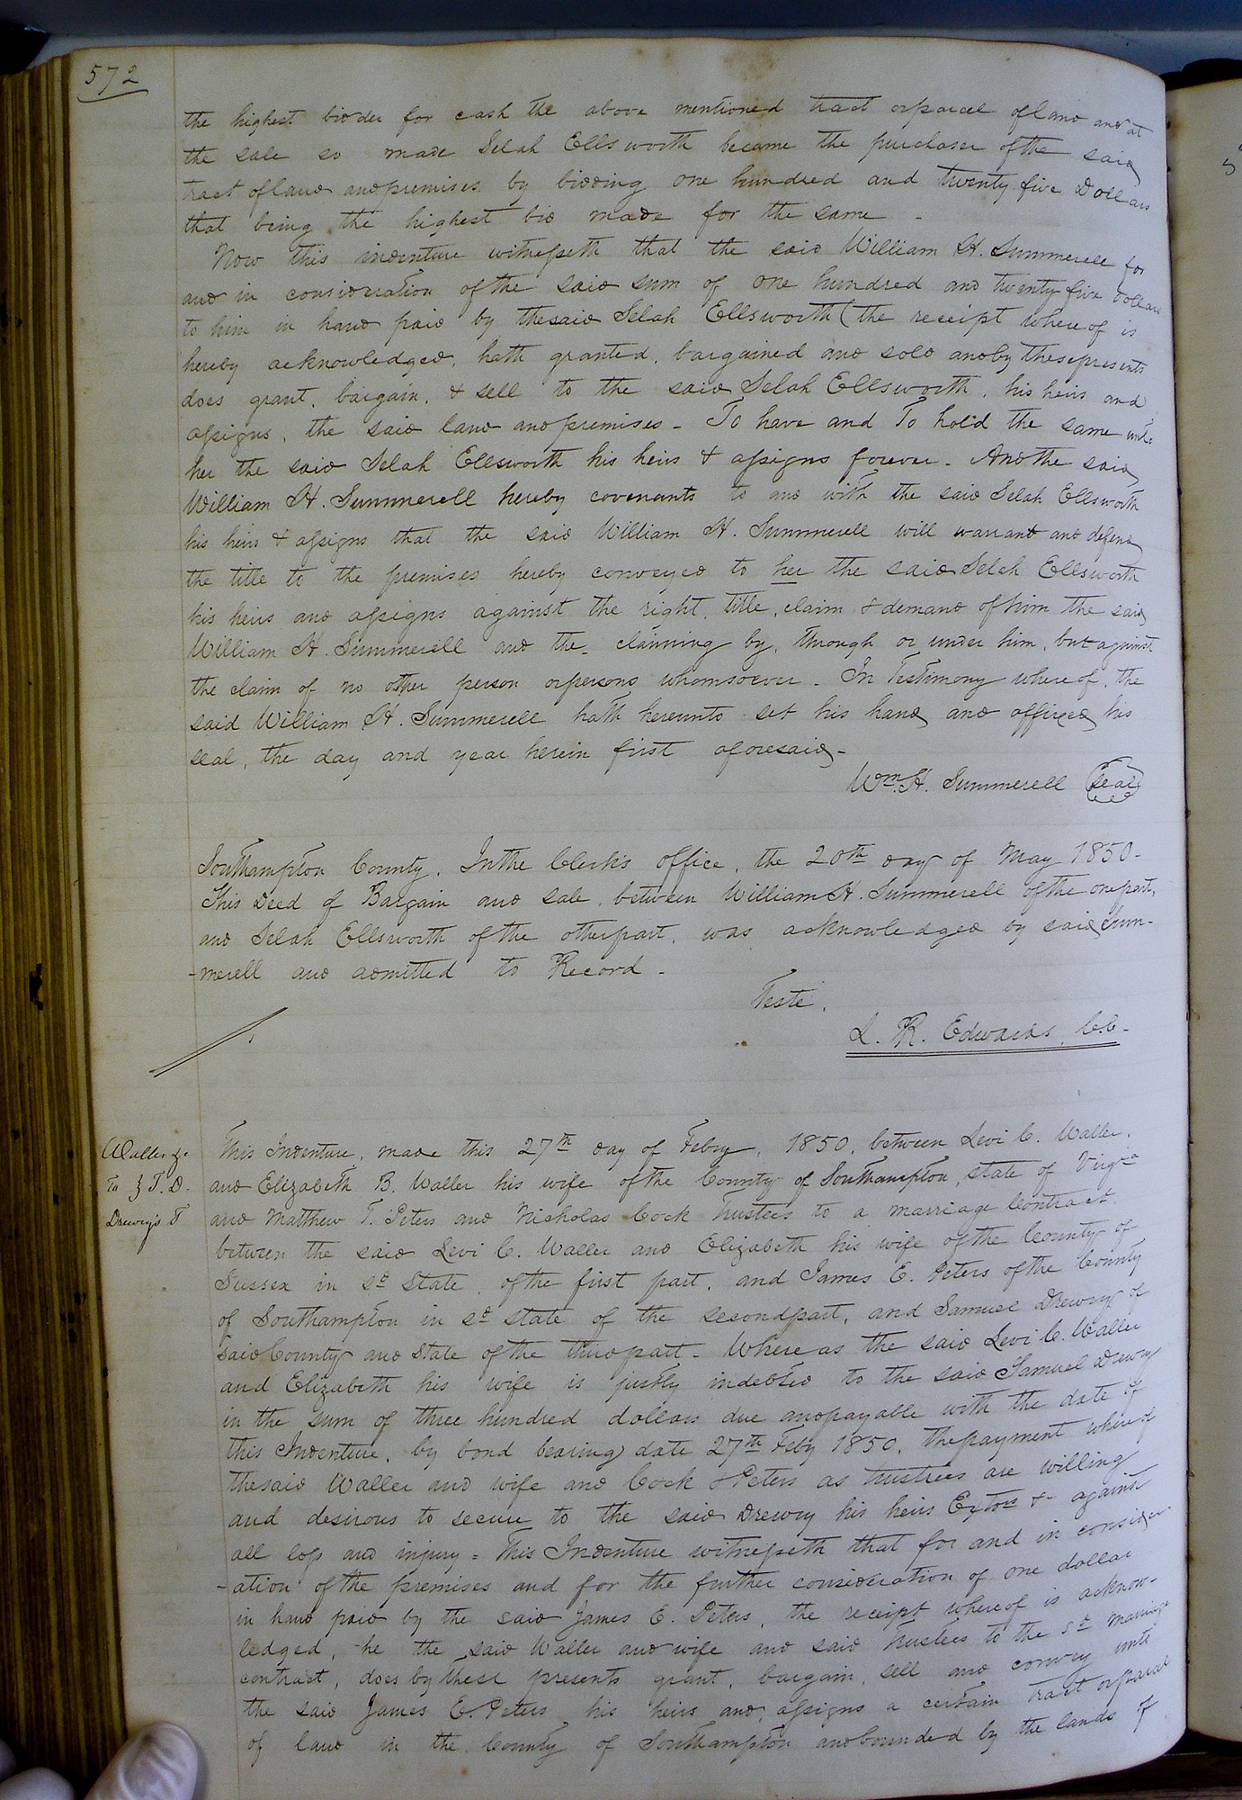 572
the highest bidder for cash the above mentioned tract or parcel of land and at
the sale so made Selah Ellsworth became the purchaser of the said
tract of land and premises by bidding one hundred and twenty five Dollars
that being the highest bid made for the same -
Now this indenture witnesseth that the said William H. Summerell for
and in consideration of the said sum of one hundred and twenty five dollars
to him in hand paid by the said Selah Ellsworth (the receipt whereof is
hereby acknowledged, hath granted, bargained and sold and by these presents
does grant, bargain, & sell to the said Selah Ellsworth, his heirs and
assigns, the said land and premises - To have and To hold the same unto
her the said Selah Ellsworth his heirs & assigns forever - And the said
William H. Summerell hereby covenants to and with the said Selah Ellsworth
his heirs & assigns that the said William H. Summerell will warrant and defend
the title to the premises hereby conveyed to her the said Selah Ellsworth
his heirs and assigns against the right, title, claim & demand of him the said
William H. Summerell and the - claiming by, through or under him, but against
the claim of no other person or persons whomsoever - In Testimony whereof, the
said William H. Summerell hath hereunto set his hand and affixed his
seal, the day and year herein first aforesaid -
Wm. H. Summerell (Seal)
Southampton County, In the Clerk's office, the 20th day of May 1850 -
This Deed of Bargain and sale, between William H. Summerell of the one part,
and Selah Ellsworth of the other part, was acknowledged by said Sum-
-merell and admitted to Record -
Teste,
L. R. Edwards, C.C. -
Waller &c
To } T. D.
Drewry's T
This Indenture, made this 27th day of Feby, 1850, between Levi C. Waller,
and Elizabeth B. Waller his wife of the County of Southampton, state of Virga
and Matthew T. Peters and Nicholas Cock Trustees to a marriage Contract
between the said Levi C. Waller and Elizabeth his wife of the County of
Sussex in sd State, of the first part, and James E. Peters of the County
of Southampton in sd state of the second part, and Samuel Drewry of
said County and State of the third part - Where as the said Levi C. Waller
and Elizabeth his wife is justly indebted to the said Samuel Drewry
in the sum of three hundred dollars due and payable with the date of
this Indenture, by bond bearing date 27th Feby 1850, the payment whereof
the said Waller and wife and Cock & Peters as trustees are willing
and desirous to secure to the said Drewry his heirs Extors &c against
all loss and injury = This Indenture witnesseth that for and in consider
-ation of the premises and for the further consideration of one dollar
in hand paid by the said James E. Peters, the receipt whereof is acknow-
ledged, he the said Waller and wife and said Trustees to the sd marriage
contract, does by these presents grant, bargain, sell and convey unto
the said James E. Peters his heirs and assigns a certain tract or parcel
of land in the County of Southampton and bounded by the lands of